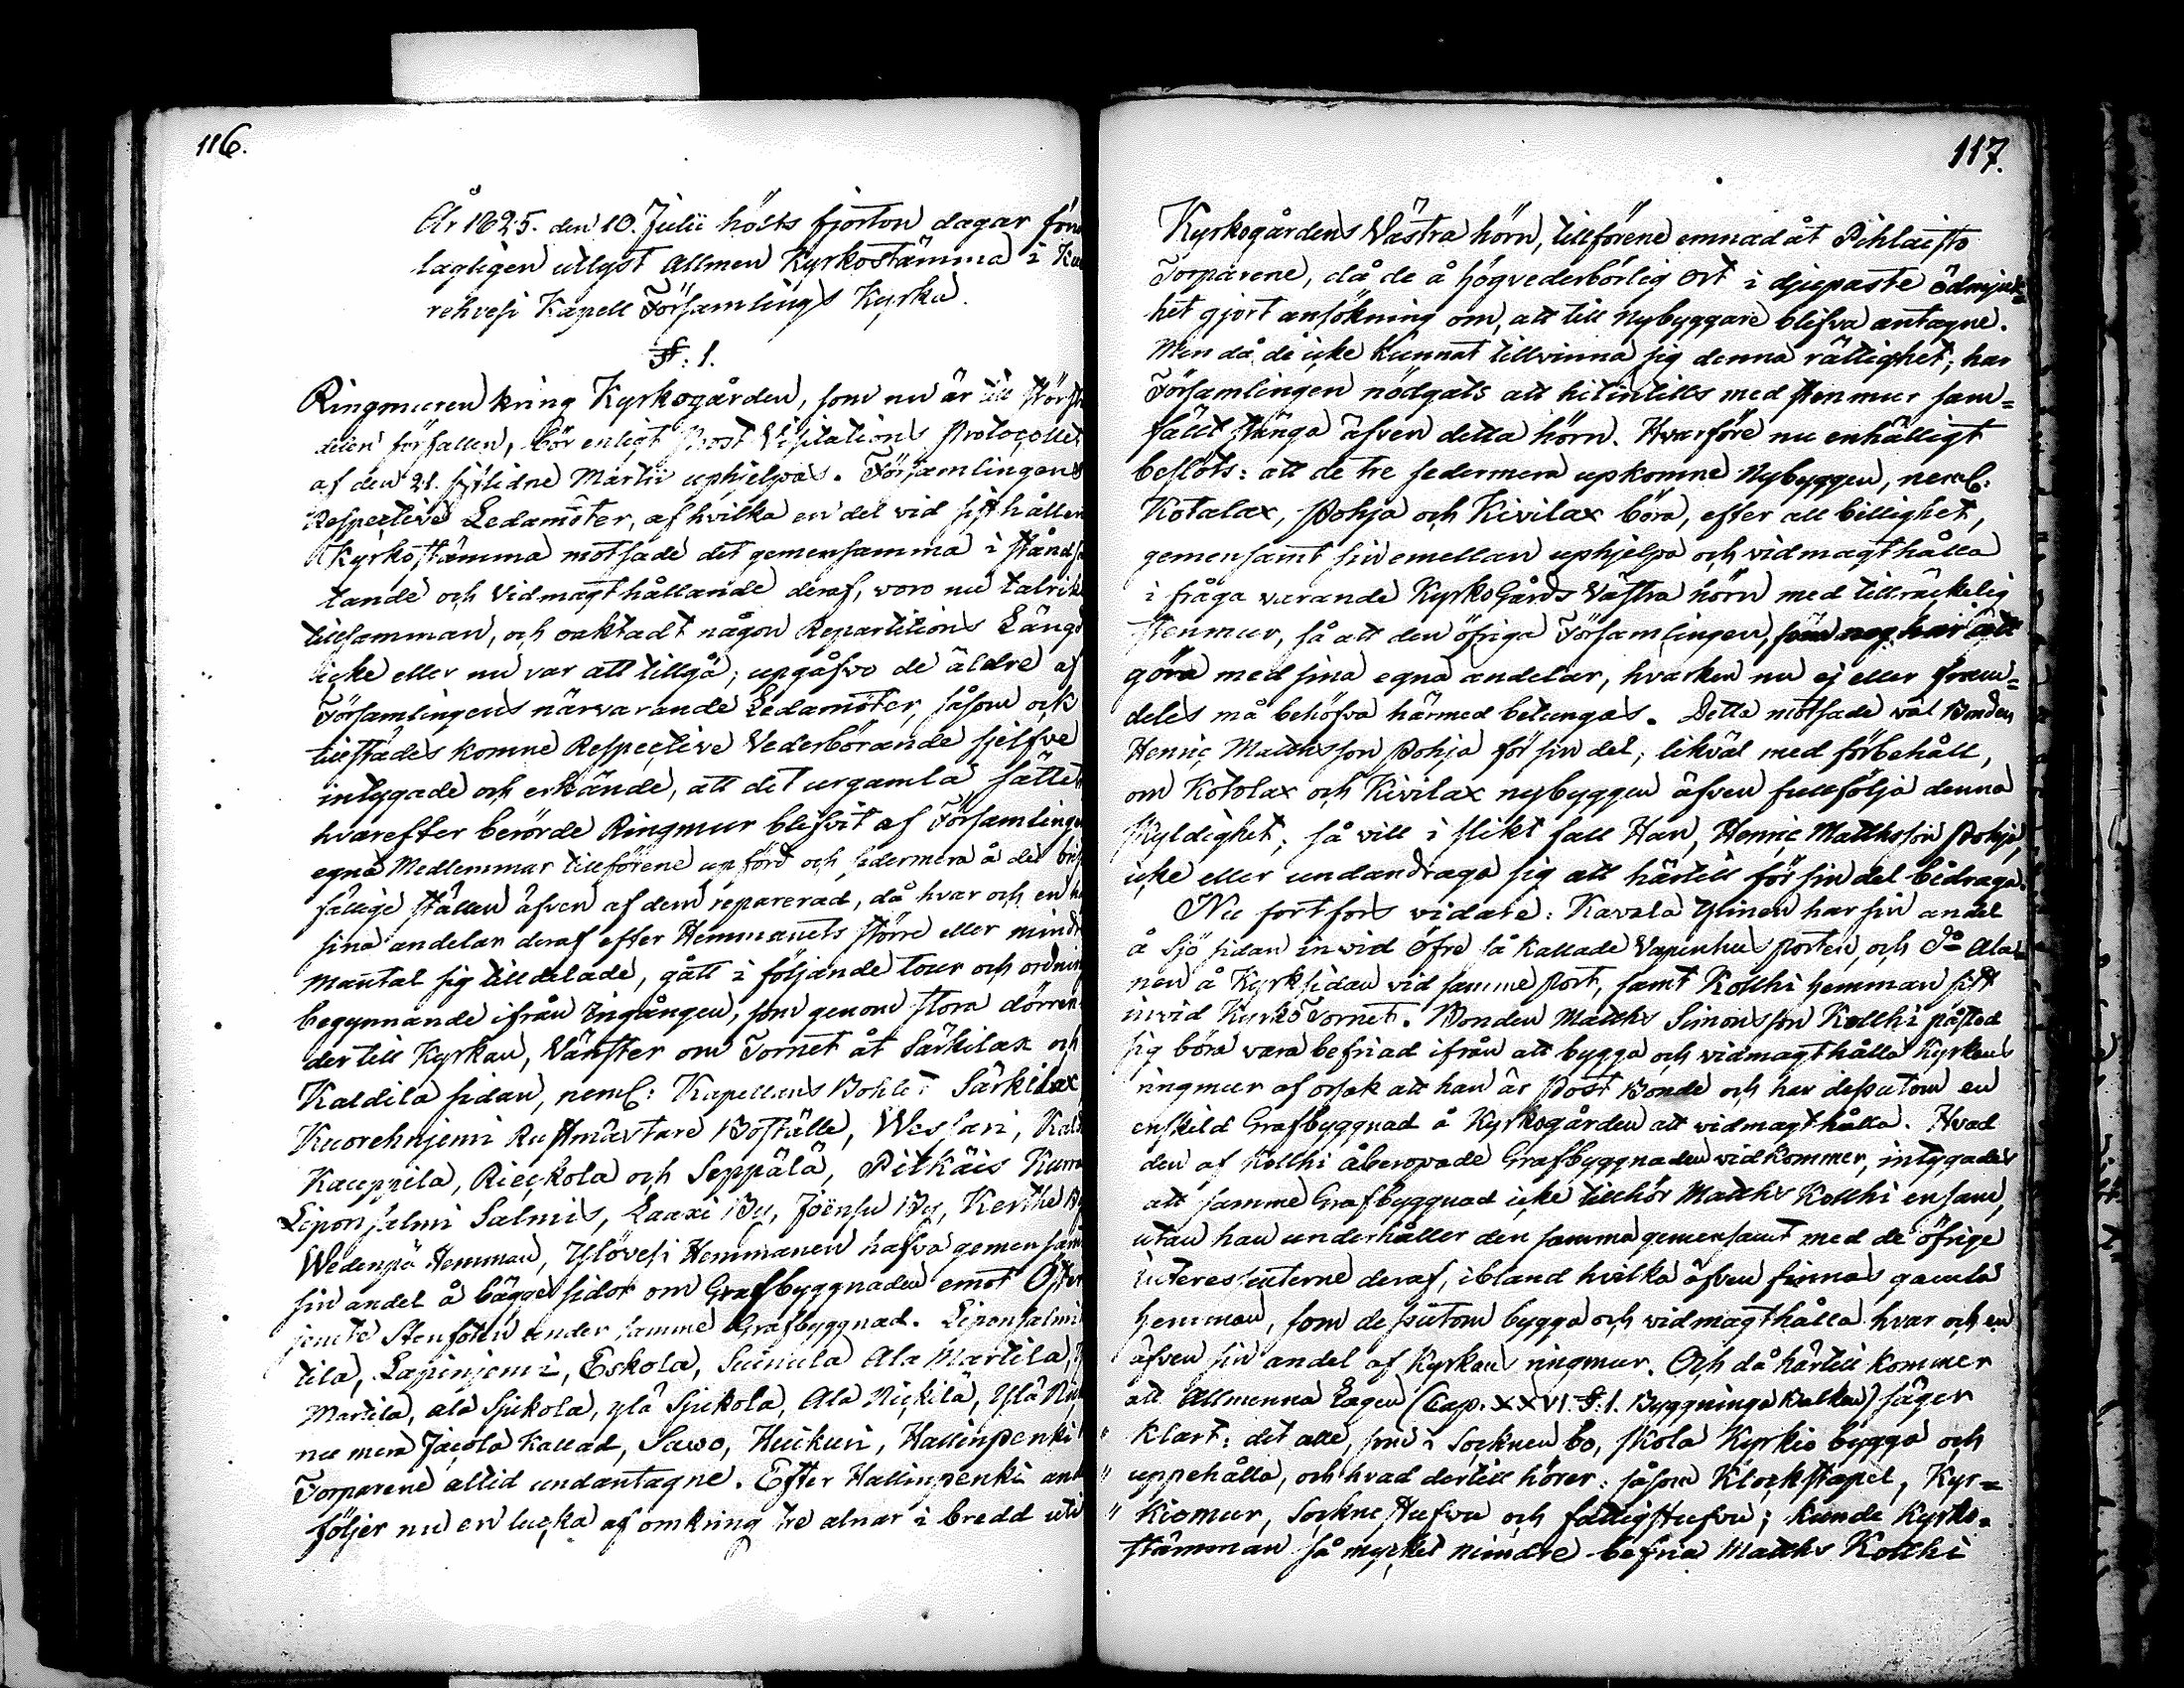 116.
År 1825. den 10. Julii hölts fjorton dagar för
lagligen utlyst Allmen Kyrkostämma i Kuo
rehvesi Kapell Församlings Kyrka.
§: 1.
Ringmuren kring Kyrkogården, som nu är till störste
delen förfallen, bör enligt Prost Visitations Protocollet
af den 21. sistlidne Martii uphjelpas. Församlingens
Respective Ledamöter, af hvilka en del vid sist hållen
Kyrkostämma motsade det gemensamma i ståndsä
tande och Vidmagthållande deraf, voro nu talrike
tillsamman, och oaktadt någon Repartitions Längd
icke eller nu var att tillgå, upgåfvo de äldre af
Församlingens närvarande Ledamöter, såsom ock
tillstädes komne Respective Vederbörande sjelfve
intygade och erkände, att det urgamla sättet
hvarefter berörde Ringmur blifvit af Församlingens
egna Medlemmar tillförene upförd och sedermera å de brist
fällige ställen äfven af dem reparerad, då hvar och en
sina andelar deraf efter Hemmanets större eller mindre
mantal sig tilldelade, gått i följande tour och ordning
begynnande ifrån Ingången, som genom stora dörren
der till Kyrkan, Vänster om Tornet åt Särkilax och
Kaldila sidan, neml: Kapellans Bohle: Särkilax
Kuorehnjemi Rustmästare Boställe, Wessari, Kald
Kauppila, Rieckola och Seppälä, Pitkäis Kurra
Liponselmi Salmis, Laaxi By, Joënsu By, Kerthe By
Wedenpä Hemman, Ylövesi Hemmanen hafva gemensamt
sin andel å bägge sidor om Grafbyggnaden emot Öster
jemte Stenfoten under samme Grafbyggnad. Liponselmi
tila, Lapinjemi, Eskola, Suinula Ala Martila, Y
Martila, ala Spikola, ylä Spikola, Ala Nickilä, Ylä Nic
nu mera Jacola Kallad, Sawo, Huikuri, Hallinpenki
Torparene altid undantagne. Efter Hallinpenki and
följer nu en lucka af omkring tre alnar i bredd uti
117.
Kyrkogårdens Västra hörn, tillförene emnad åt Pihlaisto
Torparene, då de å högvederbörlig Ort i djupaste ödmjuk=
het gjort ansökning om, att till Nybyggare blifva antagne.
Men då de icke Kunnat tillvinna sig denna rättighet, har
Församlingen nödgats att hitintills med stenmur sam=
fält stänga äfven detta hörn. Hvarföre nu enhälligt
beslöts: att de tre sedermera upkomne Nybyggen, neml:
Kotalax, Pohja och Kivilax böra, efter all billighet,
gemensamt sin emellan uphjelpa och vidmagthålla
i fråga varande KyrkoGårds Västra hörn med tillräckelig
stenmur, så att den öfriga Församlingen, som nog har att
göra med sina egna andelar, hvarken nu ej eller fram=
deles må behöfva härmed betungas. Detta motsade väl Bonden
Henric Mattsson Pohja för sin del, likväl med förbehåll,
om Kotolax och Kivilax nybyggen äfven fullfölja denna
skyldighet, så vill i slikt fall Han, Henric Mattsson Pohja,
icke eller undandraga sig att härtill för sin del bidraga.
Nu fortfors vidare: Kavala Ylinen har sin andel
å Sjö sidan invid Öfre så kallade Vapenhus porten, och Do Ala
nen å Kyrksidan vid samme Port, samt Kolkhi hemman sitt
invid KyrkoTornet. Bonden Matths Simonsson Kolkhi påstod
sig böra vara befriad ifrån att bygga och vidmagthålla Kyrkans
ringmur af orsak att han är Post Bonde och har dessutom en
enskild Grafbyggnad å Kyrkogården att vidmagthålla. Hvad
den af Kolkhi åberopade Grafbyggnaden vidkommer, intygades
att samme Grafbyggnad icke tillhör Matths Kolkhi ensam,
utan han underhåller den samma gemensamt med de öfrige
Interessenterne deraf, ibland hvilka äfven finnas gamla
hemman, som dessutom bygga och vidmagthålla hvar och en
äfven sin andel af Kyrkans ringmur. Och då härtill kommer
att Allmenna Lagen (Cap. XXVI. §: 1. Byggninga Balken) säger
" klart: det alle, som i Socknen bo, skola Kyrkio bygga och
" uppehålla, och hvad dertill hörer: såsom Klockstapel, Kyr=
" kiomur, Sockne Stufva och fattigstufva; kunde Kyrko=
stämman så mycket mindre befria Matths Kolkhi